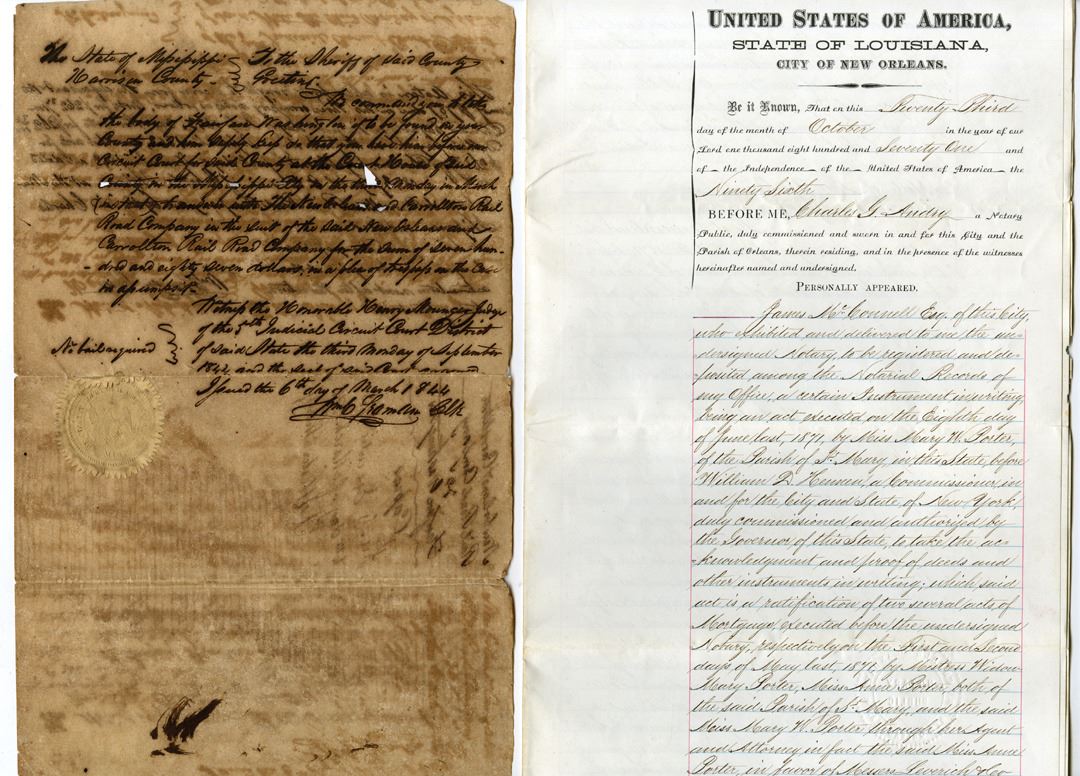 The State of Mississippi
Harrison County
To the Sheriff of said County
Greeting
We command you to take
the body of Washington if to be found in your
County and him safely keep so that you have him before our
Circuit Court for said County at the Court House of said
County in on the third Monday in March
to answer unto The New Orleans and Carrollton Rail
Road Company in the suit of the said New Orleans and
Carrollton Rail Road Company for the sum of seven hun-
-dred and eighty seven dollars, in a plea of trespass on the case
in assumpsit.
Witness the Honorable Henry Mounger Judge
of the 5th Judicial Circuit Court District
of said State the third Monday of September
and the seal of said Court
Issued the 6th day of March 1844
Clk
No bail required
UNITED STATES OF AMERICA,
STATE OF LOUISIANA,
CITY OF NEW ORLEANS.
Be it Known, That on this Twenty Third
day of the month of October in the year of our
Lord one thousand eight hundred and Seventy One and
of the Independence of the United States of America the
Ninety Sixth
BEFORE ME, Charles G. Andry a Notary
Public, duly commissioned and sworn in and for this City and the
Parish of Orleans, therein residing, and in the presence of the witnesses
hereinafter named and undersigned,
PERSONALLY APPEARED.
James McConnell Esq. of this City,
who exhibited and delivered to me, the un-
dersigned Notary, to be registered and de-
posited among the Notarial Records of
my Office, a certain Instrument in writing
being an act executed on the Eighth day
of June last, 1871, by Miss Mary W. Porter,
of the Parish of St. Mary, in this State, before
William D. Hennen, a Commissioner, in
and for the City and State, of New York,
duly commissioned and authorized by
the Governor of this State, to take the ac-
knowledgment and proof of deeds and
other instruments in writing; which said
act is a ratification of two several acts of
Mortgage, executed before the undersigned
Notary, respectively on the First and Second
days of May last, 1871, by Mistress Widow
Mary Porter, Miss Anne Porter, both of
the said Parish of St. Mary, and the said
Miss Mary W. Porter through her Agent
and Attorney in fact the said Miss Anne
Porter, in favor of Messrs Leverich & Co